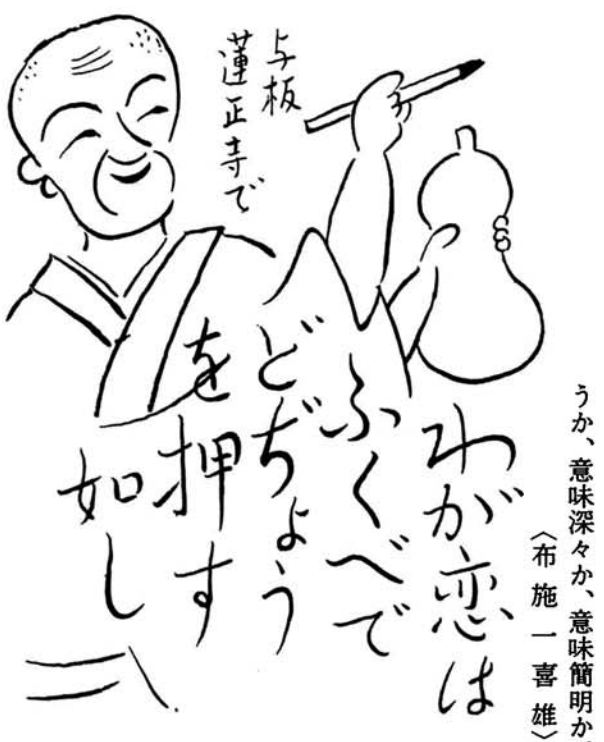 うか、意味深々か、意味簡明か。
〈布施一喜雄〉
与板
蓮正寺で
わが恋は
ふくべで
どぢょう
を押す
如し